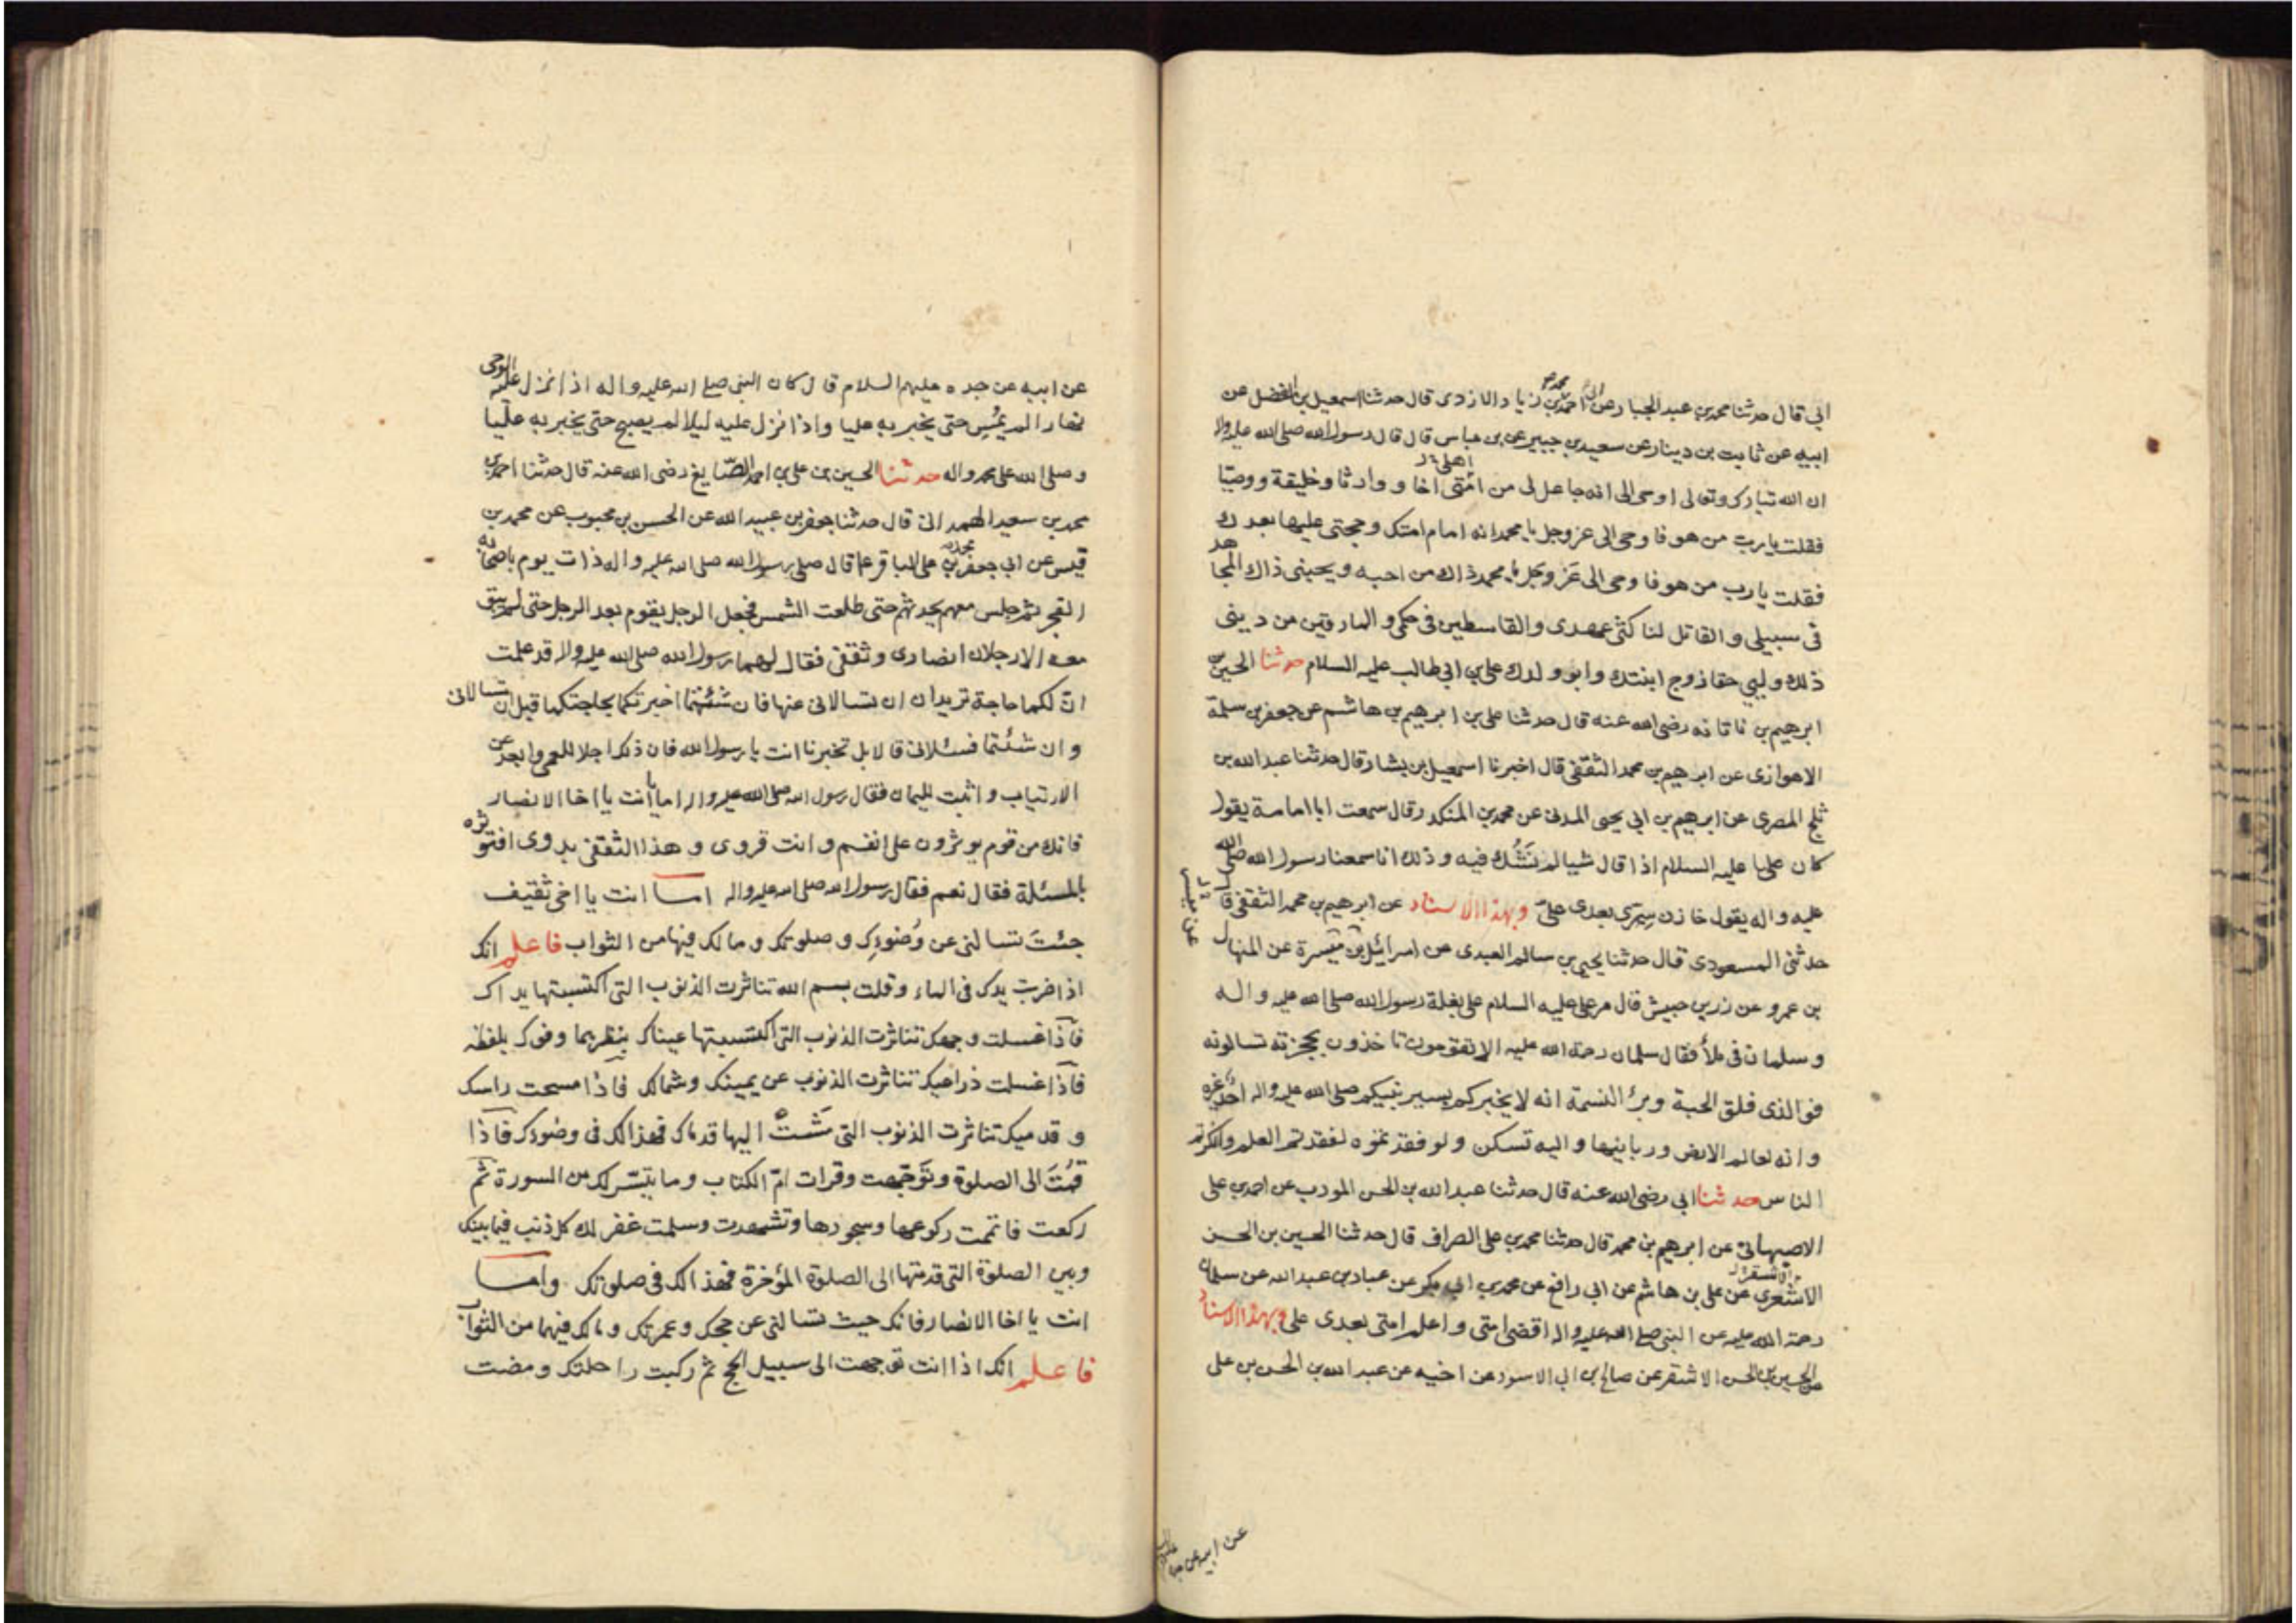 ابي قال حدثنا محمد بن عبد الجبار عن احمد بن محمد بن زياد الازدى قال حدثنا اسمعيل بن الفضل عن
ابيه عن ثابت بن دينار عن سعيد بن جبير عن بن عباس قال قال رسول الله صلى الله عليه واله
ان الله تبارك وتعالى اوحى الى انه جاعل لى من امتى اخا ووارثا وخليفة ووصيّا
فقلت يا رب من هو فاوحى الى عز وجل يا محمد انه امام امتك وحجتى عليها بعدك
فقلت يا رب من هو فاوحى الى عَزّ وجَلّ يا محمد ذاك من احبه ويحبنى ذاك المجاهد
فى سبيلى والقاتل لناكثى عهدى والقاسطين فى حكمى والمارقين من دينى
ذلك وليى حقا زوج ابنتك وابو ولدك على بن ابى طالب عليه السلام حدثنا الحسين بن
ابرهيم بن ناتانه رضى الله عنه قال حدثنا على بن ابرهيم بن هاشم عن جعفر بن سلمة
الاهوازى عن ابرهيم بن محمد الثقفى قال اخبرنا اسمعيل بن بشار قال حدثنا عبد الله بن
ثلج المصرى عن ابرهيم بن ابى يحيى المدنى عن محمد بن المنكدر قال سمعت ابا امامة يقول
كان على عليه السلام اذا قال شيا لم نَشُك فيه وذلك انا سمعنا رسول الله صلى الله
عليه واله يقول خازن سِرّى بعدى علىّ وبهذا الاسناد عن ابرهيم بن محمد الثقفى قال
حدثنى المسعودى قال حدثنا يحيى بن سالم العبدى عن اسرائيل بن مَيْسرة عن المنهال
بن عمرو عن زر بن حبيش قال مر على عليه السلام على بغلة رسول الله صلى الله عليه واله
وسلمان فى ملأ فقال سلمان رحمة الله عليه الا تقومون تاخذون بحجزته تسالونه
فو الذى فلق الحبة وبرأ النسمة انه لا يخبركم بسير نبيكم صلى الله عليه واله احد غيره
وانه لعالم الارض وربانيها واليه تسكن ولو فقدتموه لفقدتم العلم وانكرتم
الناس حدثنا ابى رضى الله عنه قال حدثنا عبد الله بن الحسن المودب عن احمد بن على
الاصبهانى عن ابرهيم بن محمد قال حدثنا محمد بن على الصراف قال حدثنا الحسين بن الحسن
الاشعرى عن على بن هاشم عن ابى رافع عن محمد بن ابى بكر عن عباد بن عبد الله عن سلمان
رحمة الله عليه عن النبى صلى الله عليه واله اقضى امتى واعلم امتى بعدى على وبهذا الاسناد
عن الحسين بن الحسن الاشقر عن صالح بن ابى الاسود عن اخيه عن عبد الله بن الحسن بن على
عن ابيه عن جده
عن ابيه عن جده عليهم السلام قال كان النبى صلى الله عليه واله اذا نزل عليه الوحى
نهارا لم يمُسِ حتى يخبر به عليا واذا نزل عليه ليلا لم يصبح حتى يخبر به عليّا
وصلى الله على محمد واله حدثنا الحسين بن على بن احمد الصّايغ رضى الله عنه قال حدثنا احمد بن
محمد بن سعيد الهمدانى قال حدثنا جعفر بن عبيد الله عن الحسن بن محبوب عن محمد بن
قيس عن ابى جعفر محمد بن على الباقر ع قال صلى رسول الله صلى الله عليه واله ذات يوم باصحابه
الفجر ثم جلس معهم يحدثهم حتى طلعت الشمس فجعل الرجل يقوم بعد الرجل حتى لم يبق
معه الا رجلان انصارى وثقفى فقال لهما رسول الله صلى الله عليه واله قد علمت
انّ لكما حاجة تريدان ان تسالانى عنها فان شئتما اخبرتكما بحاجتكما قبل ان تسالانى
وان شئتما فسئلانى قالا بل تخبرنا انت يا رسول الله فان ذلك اجلا للعمى وابعد عن
الارتياب واثبت لليمان فقال رسول الله صلى الله عليه واله اما انت يا اخا الانصار
فانك من قوم يوثرون على انفسهم وانت قروى وهذا الثقفى بدوى افتوثره
بالمسئلة فقال نعم فقال رسول الله صلى الله عليه واله اما انت يا اخى ثقيف
جئتَ تسالنى عن وُضوئِك وصلوتك وما لك فيها من الثواب فاعلم انك
اذا ضربت يدك فى الماء وقلت بسم الله تناثرت الذنوب التى اكتسبتها يداك
فاذا غسلت وجهك تناثرت الذنوب التى اكتسبتها عيناك بنظرهما وفوك بلفظه
فاذا غسلت ذراعيك تناثرت الذنوب عن يمينك وشمالك فاذا مسحت راسك
وقدميك تناثرت الذنوب التى مَشَتْ اليها قدماك فهذا لك فى وضوئك فاذا
قمُتَ الى الصلوة وتَوَجّهت وقرات امّ الكتاب وما يتسّر لك من السورة ثم
ركعت فاتممت ركوعها وسجودها وتشهدت وسلمت غفر لك كل ذنب فيما بينك
وبين الصلوة التى قدمتها الى الصلوة المؤخرة فهذا لك فى صلوتك واما
انت يا اخا الانصار فانك جيت تسالنى عن حجك وعمرتك وما لك فيهما من الثواب
فاعلم انك اذا انت توجهت الى سبيل الحج ثم ركبت راحلتك ومضت